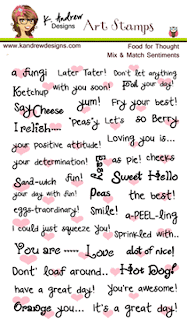 K. Andrew Designs Art Stamps
www.kandrewdesigns.com Food for Thought
Mix & Match Sentiments
a fungi Later Tater! Don't let anything
Ketchup with you soon! Foil your day!
Say Cheese yum! Fry your best!
I relish.... 'peas'y Let's so Berry
your positive attitude! Loving you is...
your determination! Easy as pie! cheeks
Sand-wich fun! Sweet Hello
your day with fun! Peas the best!
eggs-traordinary! Smile! a-PEEL-ing
I could just squeeze you! Sprinkled with..
You are ----- Love alot of nice!
Dont' loaf around.. Hot Dog!
have a great day! You're awesome!
Orange you... it's a great day!